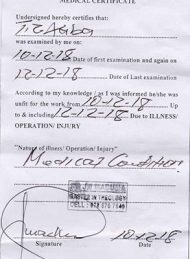 MEDICAL CERTIFICATE
Undersigned hereby certifies that:
was examined by me on:
10-12-18 Date of first examination and again on
12-12-18 Date of Last examination
According to my knowledge / as I was informed he/she was
unfit for the work from 10-12-18 Up
to & including 12-12-18 Due to ILLNESS/
OPERATION/ INJURY
"Nature of illness/ Operation/ Injury"
Medical Condition
CELL:
Signature
10-12-18
Date